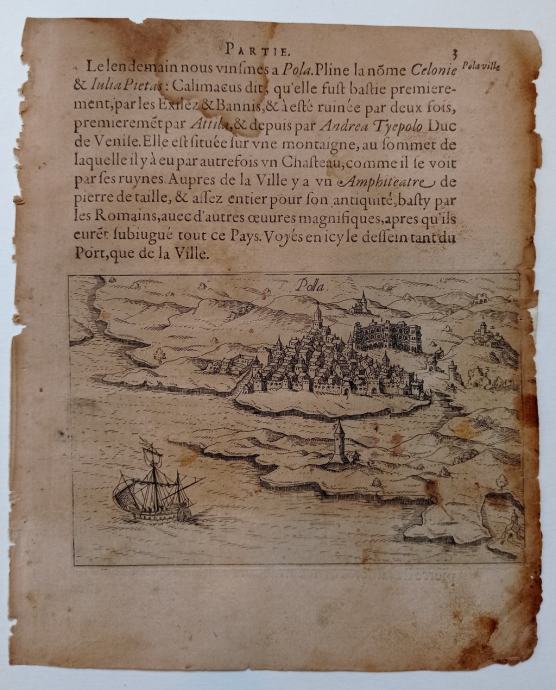 PARTIE. 3
Le lendemain nous vinſmes a Pola. Pline la nõme Celonie
Pola ville
& Iulia Pietas: Calimacus dit, qu'elle fuſt baſtie premiere-
ment, par les Exilez & Bannis, & à eſté ruinée par deux fois,
premieremẽt par Attila, & depuis par Andrea Tyepolo Duc
de Veniſe. Elle eſt ſituée ſur vne montaigne, au ſommet de
laquelle il y à eu par autrefois vn Chaſteau, comme il ſe voit
par ſes ruynes. Aupres de la Ville y a vn Amphiteatre de
pierre de taille, & aſſez entier pour ſon antiquité, baſty par
les Romains, auec d'autres œuures magnifiques, apres qu'ils
eurẽt ſubiugué tout ce Pays. Voyés en icy le deſſein tant du
Port, que de la Ville.
Polla